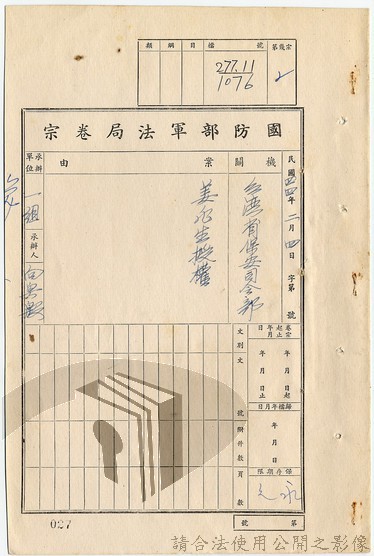 類 綱 目 檔 號 第幾宗
277.11
1076
國防部軍法局卷宗
民國四四年二月四日 字第 號
機關
台灣省保安司令部
案由
姜
授權
承辦單位
一組
承辦人
卷宗起止
年月日起
年月日止
歸檔年月日
年月日
保存期限
永久
文別
文號
附件數
頁數
第 號
027
請合法使用公開之影像